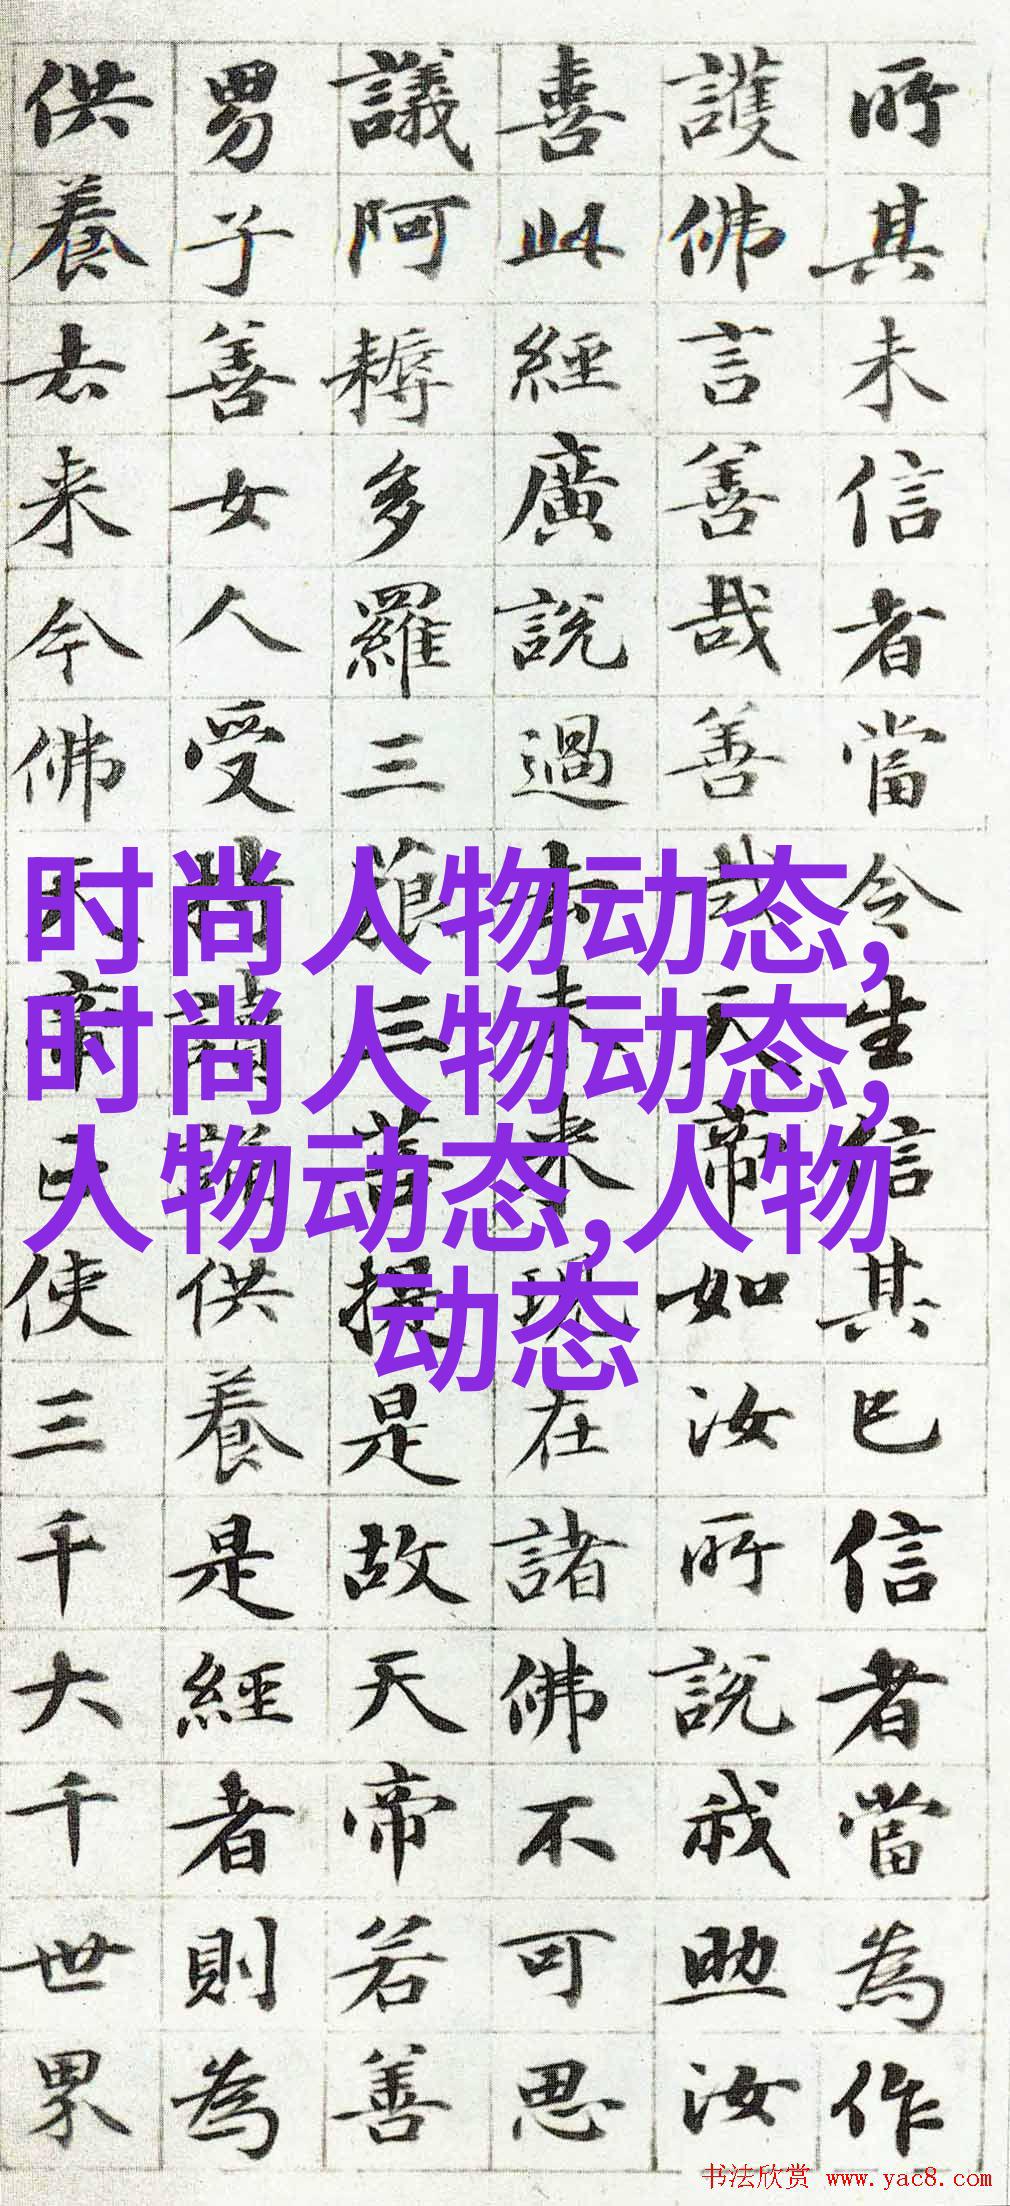 所其未信者當令生信其已信者當為作
護佛言善哉善哉天帝如汝所說我助汝
喜此經廣說過去未來現在諸佛不可思
議阿耨多羅三藐三菩提是故天帝若善
男子善女人受持讀誦供養是經者則為
供養去來今佛天帝正使三千大千世界
时尚人物动态,
时尚人物动态,
人物动态,人物
动态
书法欣赏 www.yac8.com